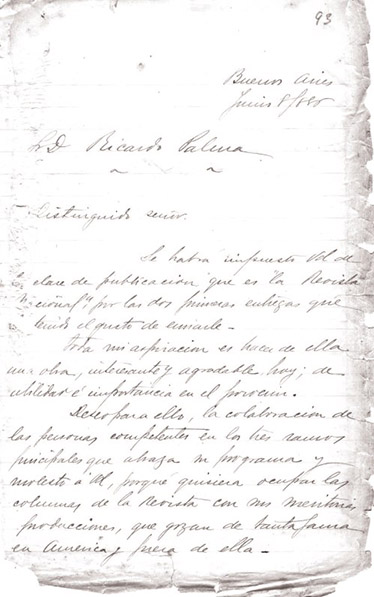 93
Buenos Aires
Junio 8/
S.D Ricardo Palma
Distinguido señor.
Se habra impuesto Vd. de
clase de publicacion que es "la Revista
Nacional" por las dos primeras entregas que
tenido el gusto de enviarle.
Toda mi aspiracion es hacer de ella
una obra, interesante y agradable, hoy; de
utilidad é importancia en el porvenir.
Deseo para ello, la colaboracion de
las personas competentes en los tres ramos
principales que abraza su programa y
molesto á Vd, porque quisiera ocupar las
columnas de la Revista con sus meritorias
producciones, que gozan de tanta fama
en América y fuera de ella.